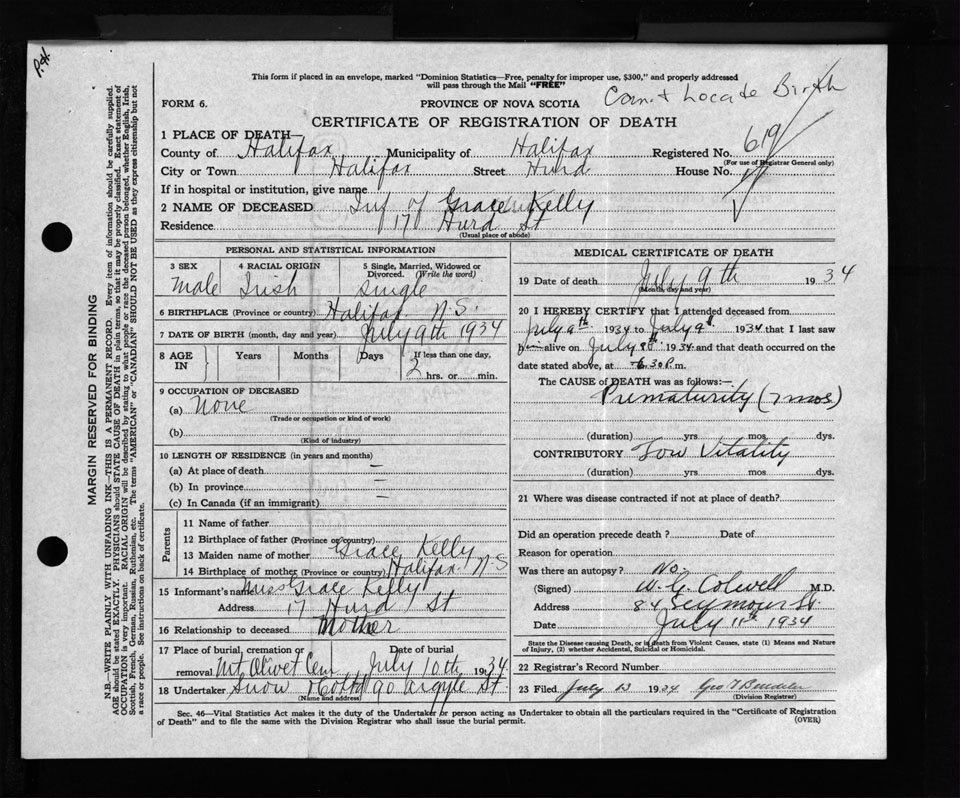 P.H.
This form if placed in an envelope, marked "Dominion Statistics—Free, penalty for improper use, $300," and properly addressed
will pass through the Mail "FREE"
Can't Locate Birth
FORM 6.
PROVINCE OF NOVA SCOTIA
CERTIFICATE OF REGISTRATION OF DEATH
1 PLACE OF DEATH—
County of Halifax Municipality of Halifax Registered No. 619
(For use of Registrar General only)
City or Town Halifax Street Hurd House No. 17
If in hospital or institution, give name
2 NAME OF DECEASED Inf of Grace Kelly
Residence 17 Hurd St
(Usual place of abode)
PERSONAL AND STATISTICAL INFORMATION
3 SEX 4 RACIAL ORIGIN 5 Single, Married, Widowed or Divorced. (Write the word)
Male Irish Single
6 BIRTHPLACE (Province or country) Halifax N.S.
7 DATE OF BIRTH (month, day and year) July 9th 1934
8 AGE IN Years Months Days If less than one day,
2 hrs. or min.
9 OCCUPATION OF DECEASED
(a) None
(Trade or occupation or kind of work)
(b)
(Kind of industry)
10 LENGTH OF RESIDENCE (in years and months)
(a) At place of death —
(b) In province —
(c) In Canada (if an immigrant) —
Parents
11 Name of father
12 Birthplace of father (Province or country)
13 Maiden name of mother Grace Kelly
14 Birthplace of mother (Province or country) Halifax N.S
15 Informant's name Miss Grace Kelly
Address 17 Hurd St
16 Relationship to deceased Mother
17 Place of burial, cremation or Date of burial
removal Mt Olivet Cem July 10th 1934
18 Undertaker Snow & Co Ltd 90 Argyle St.
(Name and address)
MEDICAL CERTIFICATE OF DEATH
19 Date of death July 9th 1934
(Month, day and year)
20 I HEREBY CERTIFY that I attended deceased from
July 9th 1934 to July 9th 1934 that I last saw
him alive on July 1934 and that death occurred on the
date stated above, at 6.30 P.m.
The CAUSE of DEATH was as follows:—
Prematurity (7 mos)
(duration) yrs mos. dys.
CONTRIBUTORY Low Vitality
(duration) yrs mos dys.
21 Where was disease contracted if not at place of death?
Did an operation precede death? Date of
Reason for operation
Was there an autopsy? No.
(Signed) W. G. Colwell M.D.
Address 84 Seymour St.
Date July 11th 1934
State the Disease causing Death, or in death from Violent Causes, state (1) Means and Nature
of Injury, (2) whether Accidental, Suicidal or Homicidal.
22 Registrar's Record Number
23 Filed July 13 1934
(Division Registrar)
Sec. 46—Vital Statistics Act makes it the duty of the Undertaker or person acting as Undertaker to obtain all the particulars required in the "Certificate of Registration
of Death" and to file the same with the Division Registrar who shall issue the burial permit.
(OVER)
MARGIN RESERVED FOR BINDING
N.B.—WRITE PLAINLY WITH UNFADING INK—THIS IS A PERMANENT RECORD. Every item of information should be carefully supplied.
AGE should be stated EXACTLY. PHYSICIANS should STATE CAUSE OF DEATH in plain terms, so that it may be properly classified. Exact statement of
OCCUPATION is very important. RACIAL ORIGIN will be described by stating to what people or race the deceased person belonged, whether English, Irish,
Scottish, French, German, Russian, Ruthenian, etc. The terms "AMERICAN" or "CANADIAN" SHOULD NOT BE USED as they express citizenship but not
a race or people. See instructions on back of certificate.